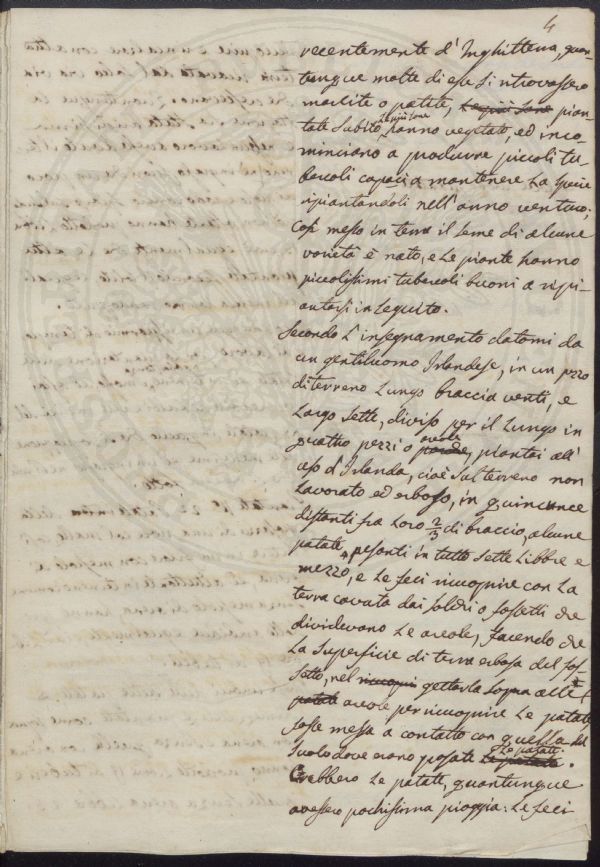 4
recentemente d'Inghilterra, quan-
tunque molte di esse si ritrovassero
marcite o patite, le più sane pian-
le più sane
tate subito hanno vegetato, ed inco-
minciano a produrre piccoli tu-
bercoli capaci a mantenere la specie
ripiantandoli nell'anno venturo.
Così messo in terra il seme di alcune
varietà è nato, e le piante hanno
piccolissimi tubercoli buoni a ripi-
antarsi in seguito.
Secondo l'insegnamento datomi da
un gentiluomo Irlandese, in un pezzo
di terreno lungo braccia venti, e
largo sette, diviso per il lungo in
areole
quattro pezzi o piantai all'
uso d'Irlanda, cioè sul terreno non
lavorato ed erboso, in quincunce
distanti fra loro 2/3 di braccio, alcune
patate pesanti in tutto sette libbre e
mezzo, e le feci ricuoprire con la
terra cavata dai solchi o fossetti che
dividevano le areole, facendo che
la superficie di terra erbosa del fos-
setto, nel ricuopri gettarla sopra alle
patate areole per ricuoprire le patate
fosse messa a contatto con quella del
le patate
suolo dove erano posate le patate.
Crebbero le patate, quantunque
avessero pochissima pioggia: le feci